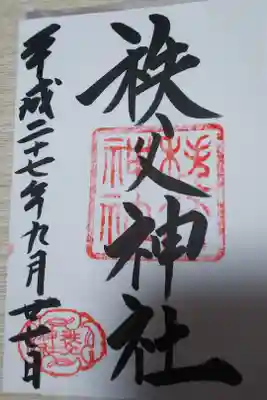 秩父神社
秩父神社
平成二十七年九月廿七日